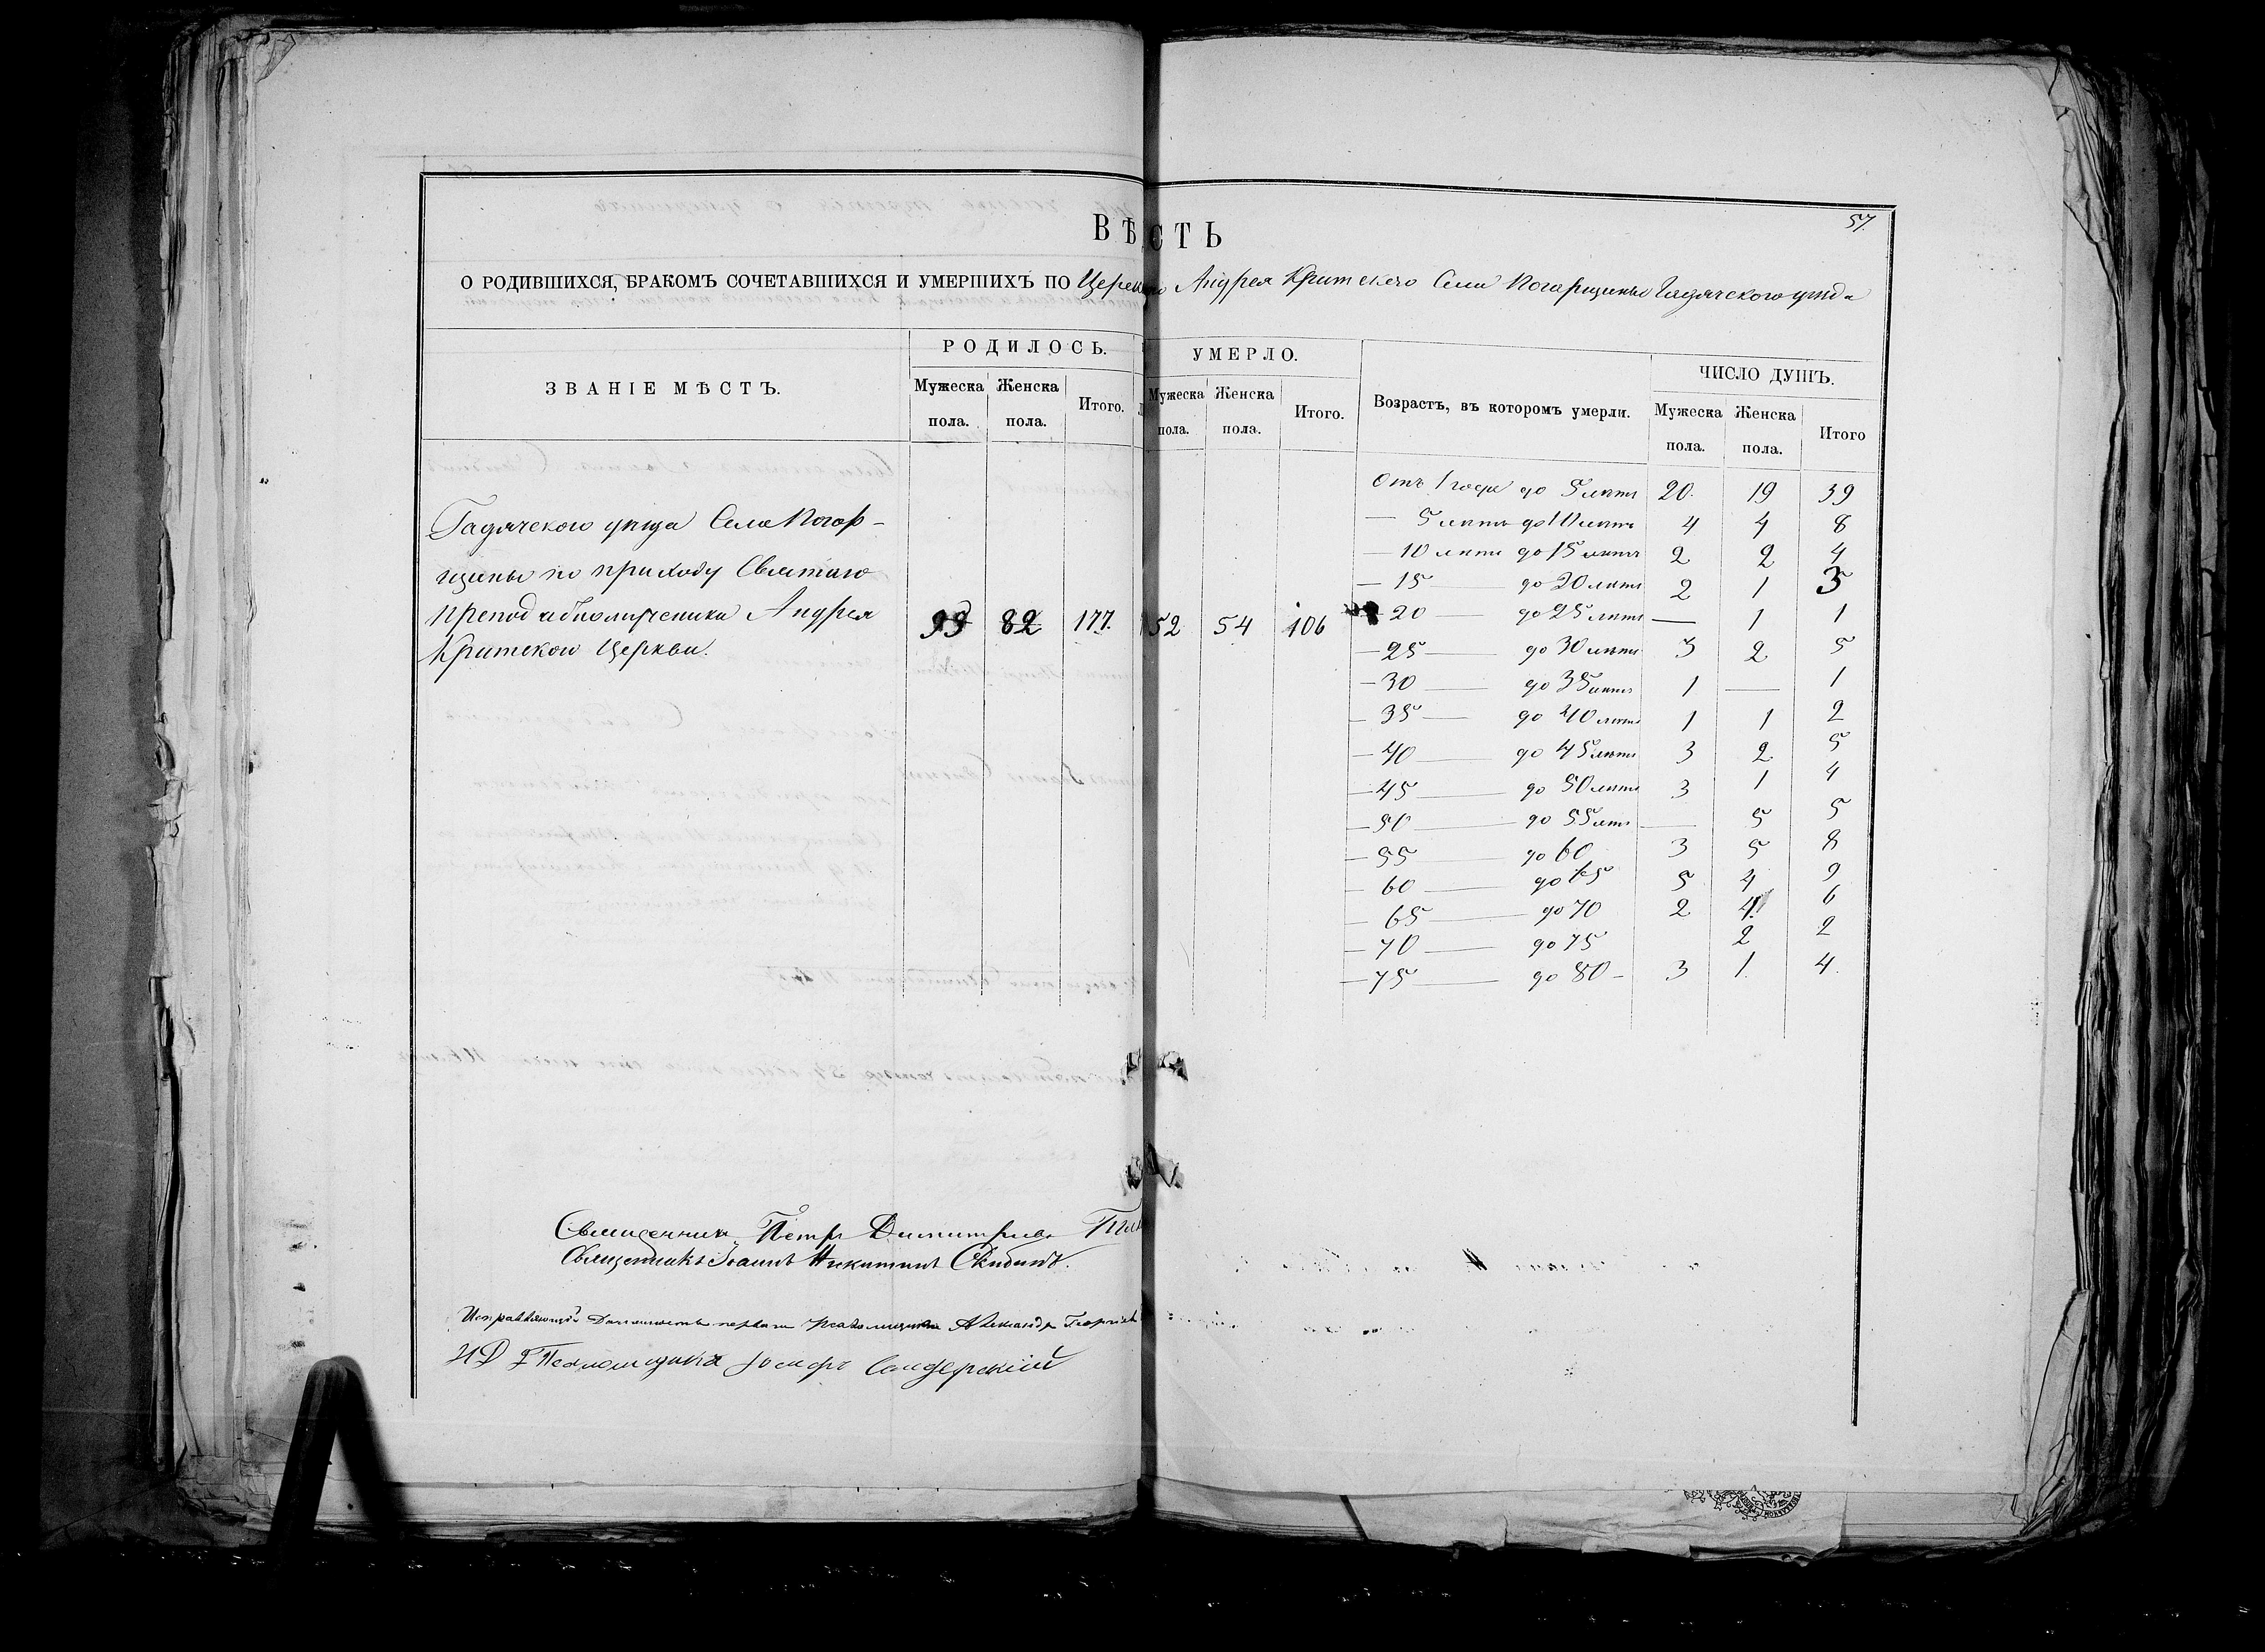 57.
ВѢСТЬ
О РОДИВШИХСЯ, БРАКОМЪ СОЧЕТАВШИХСЯ И УМЕРШИХЪ ПО Андрея Критского Села Погарщины Гадячского уѣзда
ЗВАНІЕ МѢСТЪ.
РОДИЛОСЬ.
Мужеска пола.
Женска пола.
Итого.
УМЕРЛО.
Мужеска пола.
Женска пола.
Итого.
Возрастъ, въ которомъ умерли.
ЧИСЛО ДУШЪ.
Мужеска пола.
Женска пола.
Итого
Гадячского уѣзда Села Погар-
щины по приходу Святаго
Андрея
Критскои Церкви.
82 177. 52 54 106
Отъ 1 года до 5 лѣтъ 20. 19 39
— 5 лѣтъ до 10 лѣтъ 4 4 8
— 10 лѣтъ до 15 лѣтъ 2 2 4
— 15 — до 20 лѣтъ 2 1 3
20 — до 25 лѣтъ — 1 1
— 25 — до 30 лѣтъ 3 2 5
— 30 — до 35 лѣтъ 1 — 1
— 35 — до 40 лѣтъ 1 1 2
— 40 — до 45 лѣтъ 3 2 5
— 45 — до 50 лѣтъ 3 1 4
— 50 — до 55 лѣтъ — 5 5
— 55 — до 60 3 5 8
— 60 — до 65 5 4 9
— 65 — до 70 2 4 6
— 70 — до 75 2 2
— 75 — до 80 — 3 1. 4.
Священникъ Петръ Димитріевъ
Священникъ Іоаннъ Никитинъ Скибинъ.
Исправляющій Должность перваго Псаломщика Александръ Георгіевъ
ИД 2 Псаломщика Іосифъ